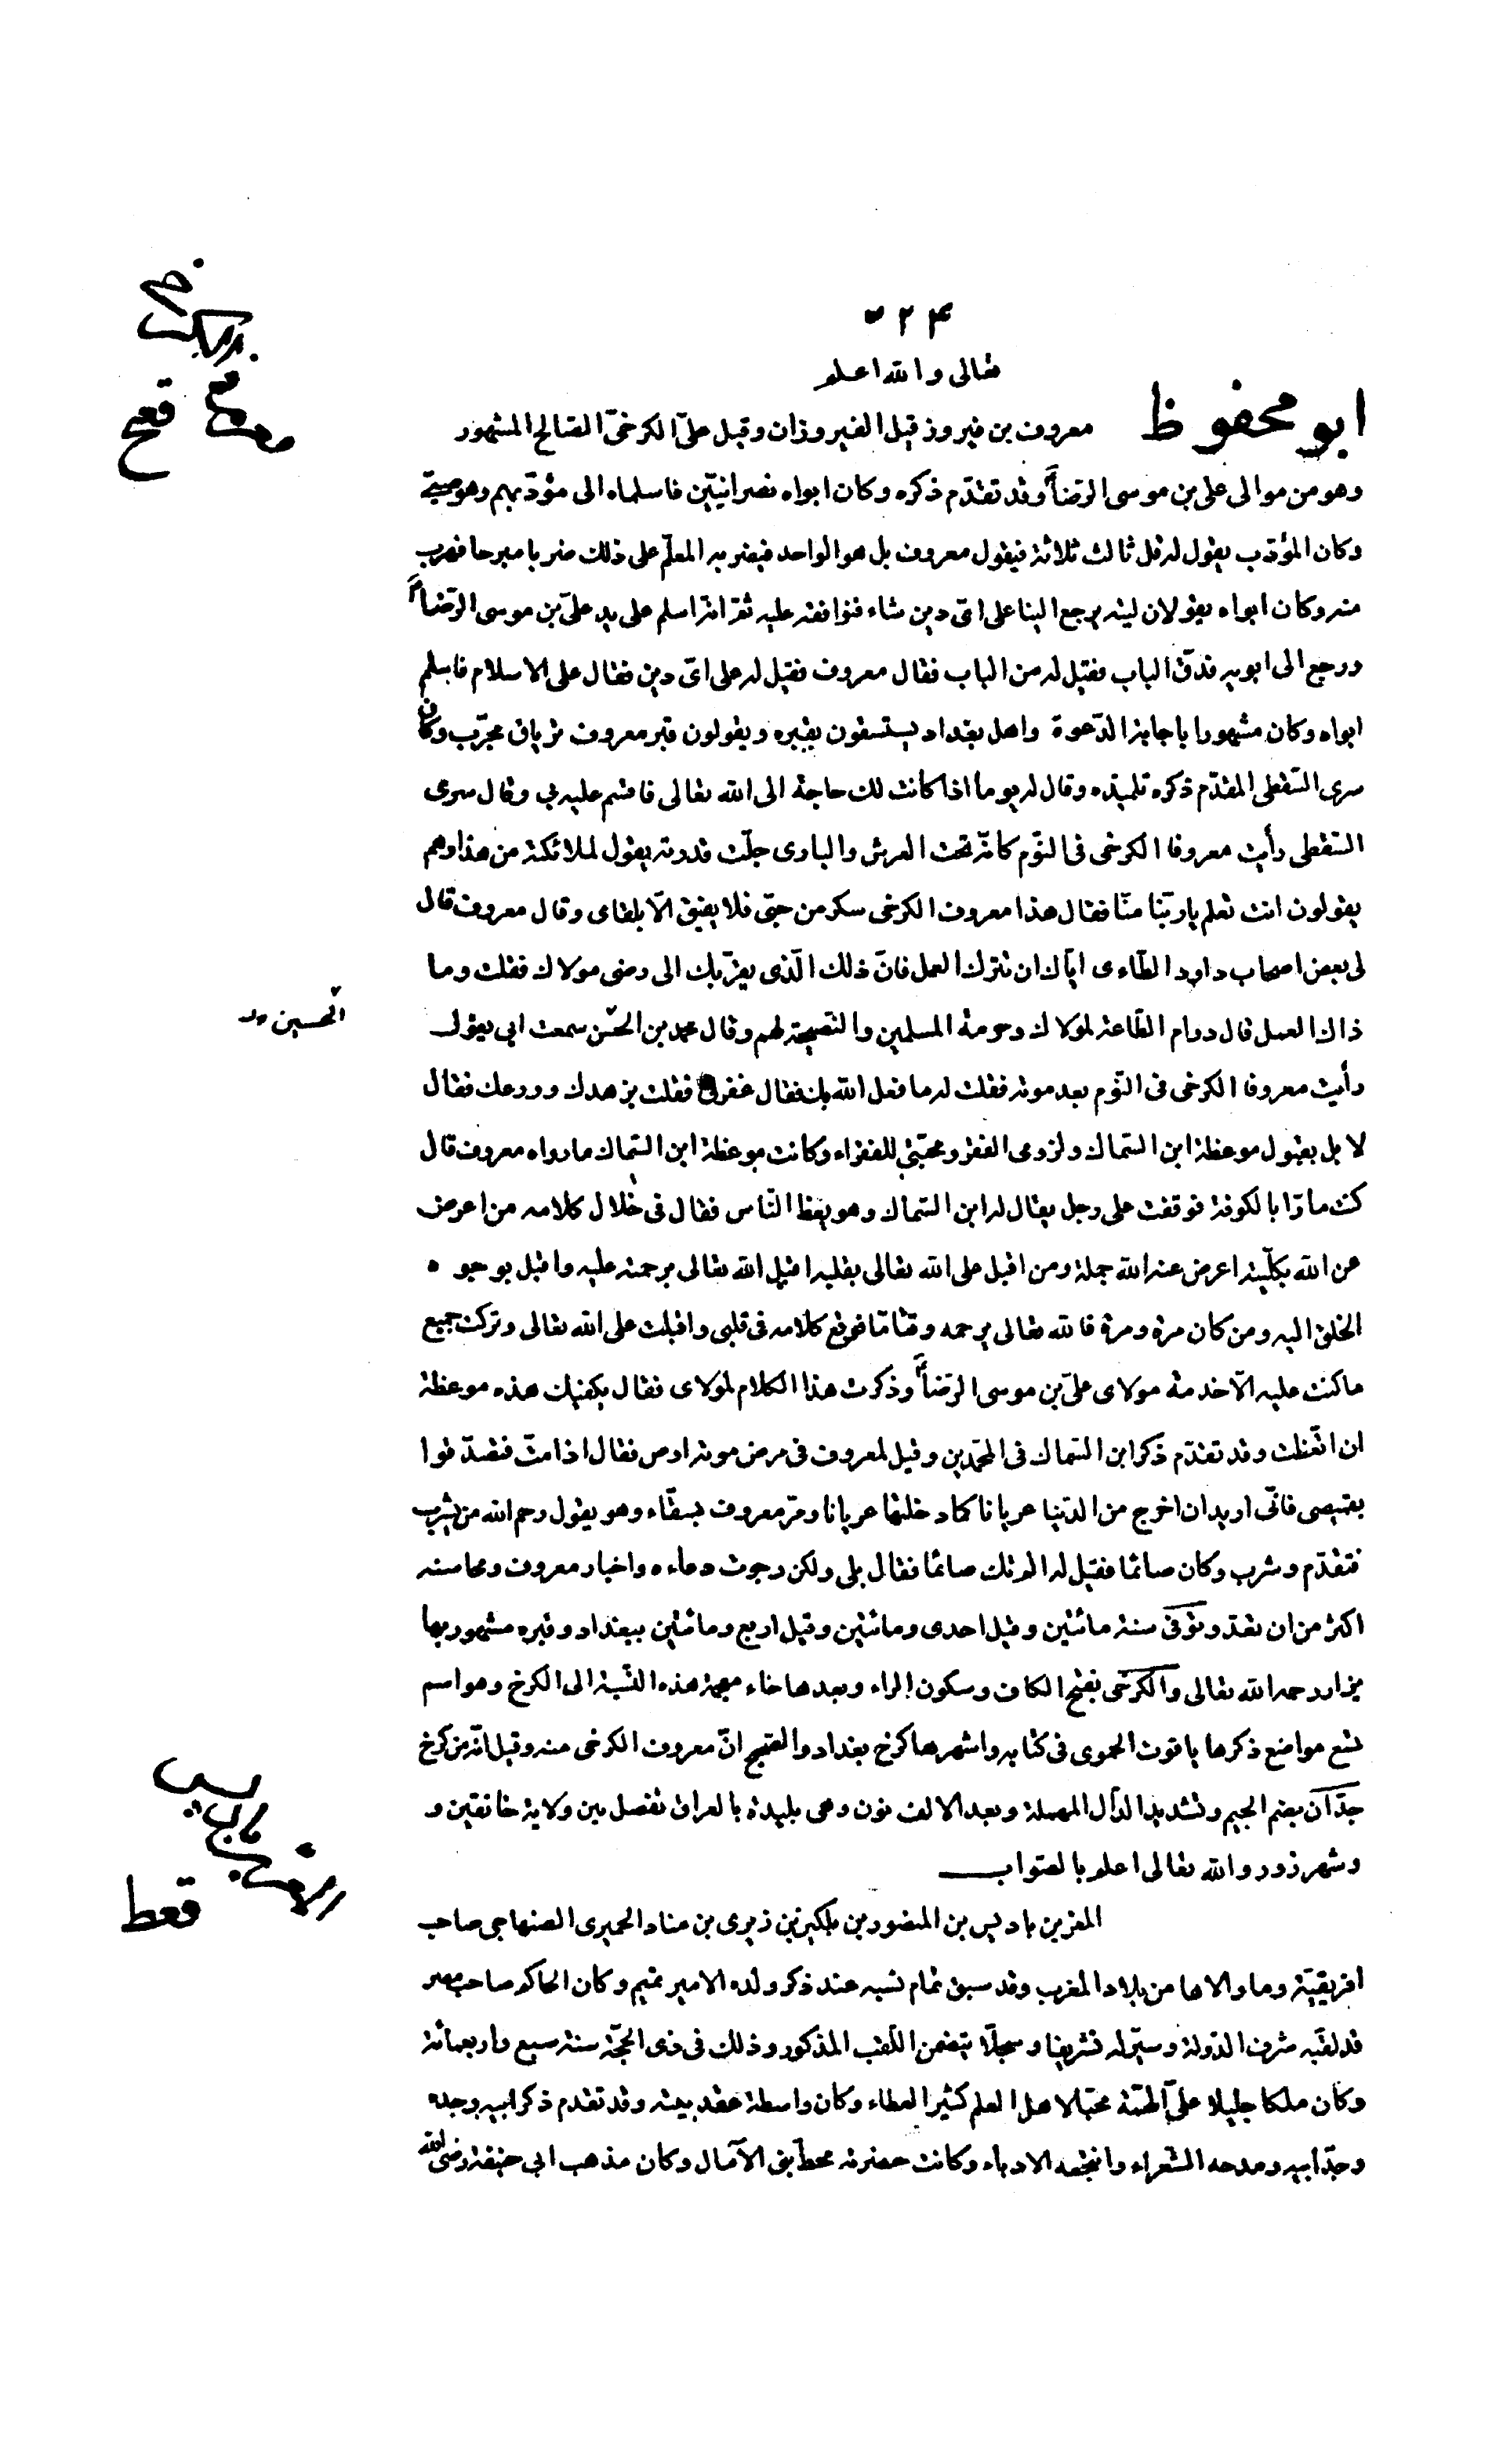 ۴ ۲ ۳
تعالى والله اعلم
ابو محفوظ معروف بن فيروز قيل الفيروزان وقيل علىّ الكرخىّ الصّالح المشهور
وهو من موالى على بن موسى الرّضا وقد تقدّم ذكره وكان ابواه نصرانيّين فاسلماه الى مؤدّبهم وهو صبىّ
وكان المؤدّب يقول له قل ثالث ثلاثة فيقول معروف بل هو الواحد فيضربه المعلّم على ذلك ضربا مبرحا فهرب
منه وكان ابواه يقولان ليته يرجع الينا على اىّ دين شاء فنوافقه عليه ثمّ انّه اسلم على يد علىّ بن موسى الرّضا
ورجع الى ابويه فدقّ الباب فقيل له من الباب فقال معروف فقيل له على اىّ دين فقال على الاسلام فاسلم
ابواه وكان مشهورا باجابة الدّعوة واهل بغداد يستسقون بقبره ويقولون قبر معروف ترياق مجرّب وكان
سرى السّقطى المقدّم ذكره تلميذه وقال له يوما اذا كانت لك حاجة الى الله تعالى فاقسم عليه بى وقال سرى
السّقطى رأيت معروفا الكرخى فى النّوم كانّه تحت العرش والبارى جلّت قدرته يقول لملائكته من هذا وهم
يقولون انت تعلم يا ربّنا منّا فقال هذا معروف الكرخى سكر من حبّى فلا يفيق الّا بلقاى وقال معروف قال
لى بعض اصحاب داود الطّاءى ايّاك ان تترك العمل فانّ ذلك الّذى يقرّبك الى رضى مولاك فقلت وما
ذاك العمل قال دوام الطّاعة لمولاك وحرمة المسلمين والنّصيحة لهم وقال محمد بن الحسن سمعت ابى يقول
الحسين
رأيت معروفا الكرخى فى النّوم بعد موته فقلت له ما فعل الله بك فقال غفر لى فقلت بزهدك وورعك فقال
لا بل بقبول موعظة ابن السّماك ولزومى الفقر ومحبّتى للفقراء وكانت موعظة ابن السّماك ما رواه معروف قال
كنت مارّا بالكوفة فوقفت على رجل يقال له ابن السّماك وهو يعظ النّاس فقال فى خلال كلامه من اعرض
عن الله بكلّيته اعرض عنه الله جملة ومن اقبل على الله تعالى بقلبه اقبل الله تعالى برحمته عليه واقبل بوجوه
الخلق اليه ومن كان مرة ومرة فالله تعالى يرحمه وقتا مّا فوقع كلامه فى قلبى واقبلت على الله تعالى وتركت جميع
ما كنت عليه الّا خدمة مولاى علىّ بن موسى الرّضا وذكرت هذا الكلام لمولاى فقال يكفيك هذه موعظة
ان اتّعظت وقد تقدّم ذكر ابن السّماك فى المحمّدين وقيل لمعروف فى مرض موته اوص فقال اذا متّ فتصدّقوا
بقميصى فانّى اريد ان اخرج من الدّنيا عريانا كما دخلتها عريانا ومرّ معروف بسقّاء وهو يقول رحم الله من يشرب
فتقدّم وشرب وكان صائما فقيل له الم تك صائما فقال بلى ولكن رجوت دعاءه واخبار معروف ومحاسنه
اكثر من ان تعدّ وتوفّى سنة مائتين وقيل احدى ومائتين وقيل اربع ومائتين ببغداد وقبره مشهور بها
يزار رحمه الله تعالى والكرخى بفتح الكاف وسكون الراء وبعدها خاء معجمة هذه النّسبة الى الكرخ وهو اسم
تسع مواضع ذكرها ياقوت الحموى فى كتابه واشهرها كرخ بغداد والصّحيح انّ معروف الكرخى منه وقيل انّه من كرخ
جدّان بضم الجيم وتشديد الدّال المهملة وبعد الالف نون وهى بليدة بالعراق تفصل بين ولاية خانقين و
وشهرزور والله تعالى اعلم بالصّواب
المعز بن باديس بن المنصور بن بلكين بن زيرى بن مناد الحميرى الصنهاجى صاحب
قعط
افريقيّة وما والاها من بلاد المغرب وقد سبق تمام نسبه عند ذكر ولده الامير تميم وكان الحاكم صاحب مصر
قد لقّبه شرف الدّولة وسيّر له تشريفا وسجلّا يتضمن اللّقب المذكور وذلك فى ذى الحجّة سنة سبع واربعمائة
وكان ملكا جليلا علىّ الهمّة محبّا لاهل العلم كثير العطاء وكان واسطة عقد بيته وقد تقدم ذكر ابيه وجده
وجدّ ابيه ومدحه الشّعراء وانتجعه الادباء وكانت حضرته محطّ بنى الآمال وكان مذهب ابى حنيفة رضى الله